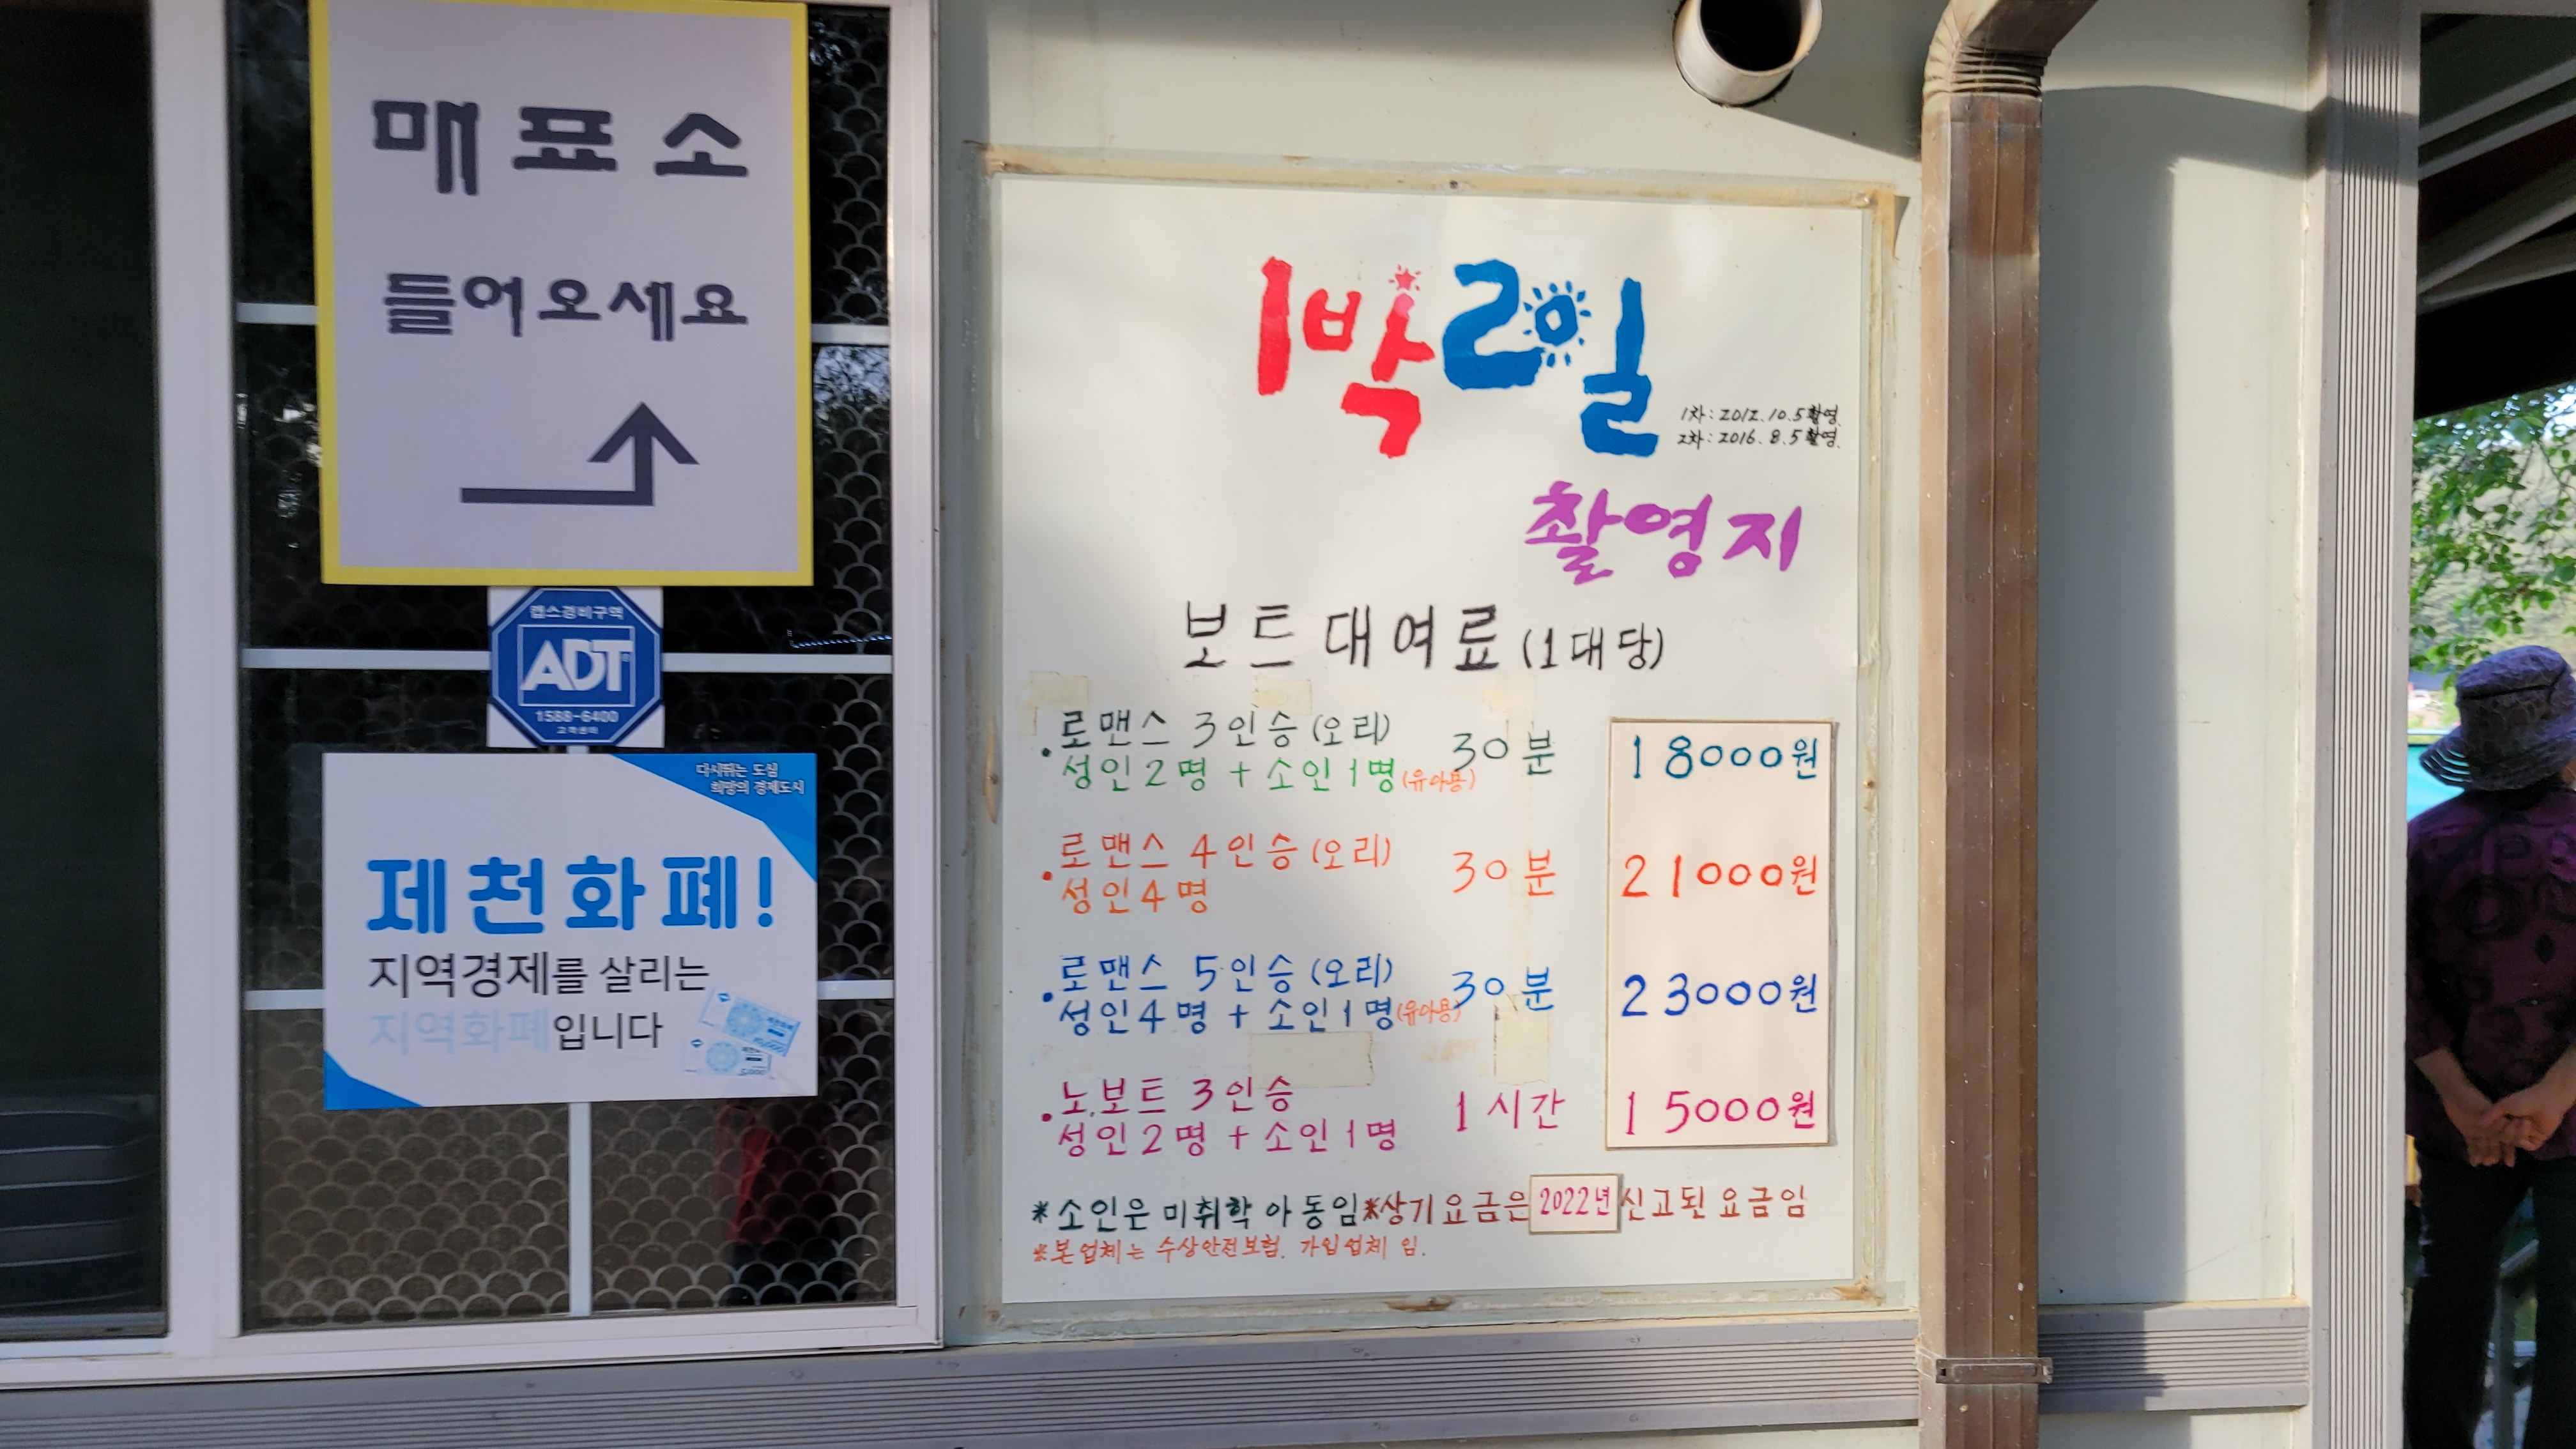 매표소
들어오세요
캡스경비구역
ADT
1588-6400
고객센터
다시뛰는 도심
희망의 경제도시
제천화폐!
지역경제를 살리는
지역화폐입니다
5,000
1박2일
1차: 2012. 10. 5 촬영.
2차: 2016. 8. 5 촬영.
촬영지
보트대여료 (1대당)
• 로맨스 3인승 (오리) 30분 18000원
성인2명 + 소인1명 (유아용)
• 로맨스 4인승 (오리) 30분 21000원
성인4명
• 로맨스 5인승 (오리) 30분 23000원
성인4명 + 소인1명 (유아용)
• 노.보트 3인승 1시간 15000원
성인2명 + 소인1명
*소인은 미취학 아동임 *상기요금은 2022년 신고된 요금임
*본업체는 수상안전보험. 가입업체 임.